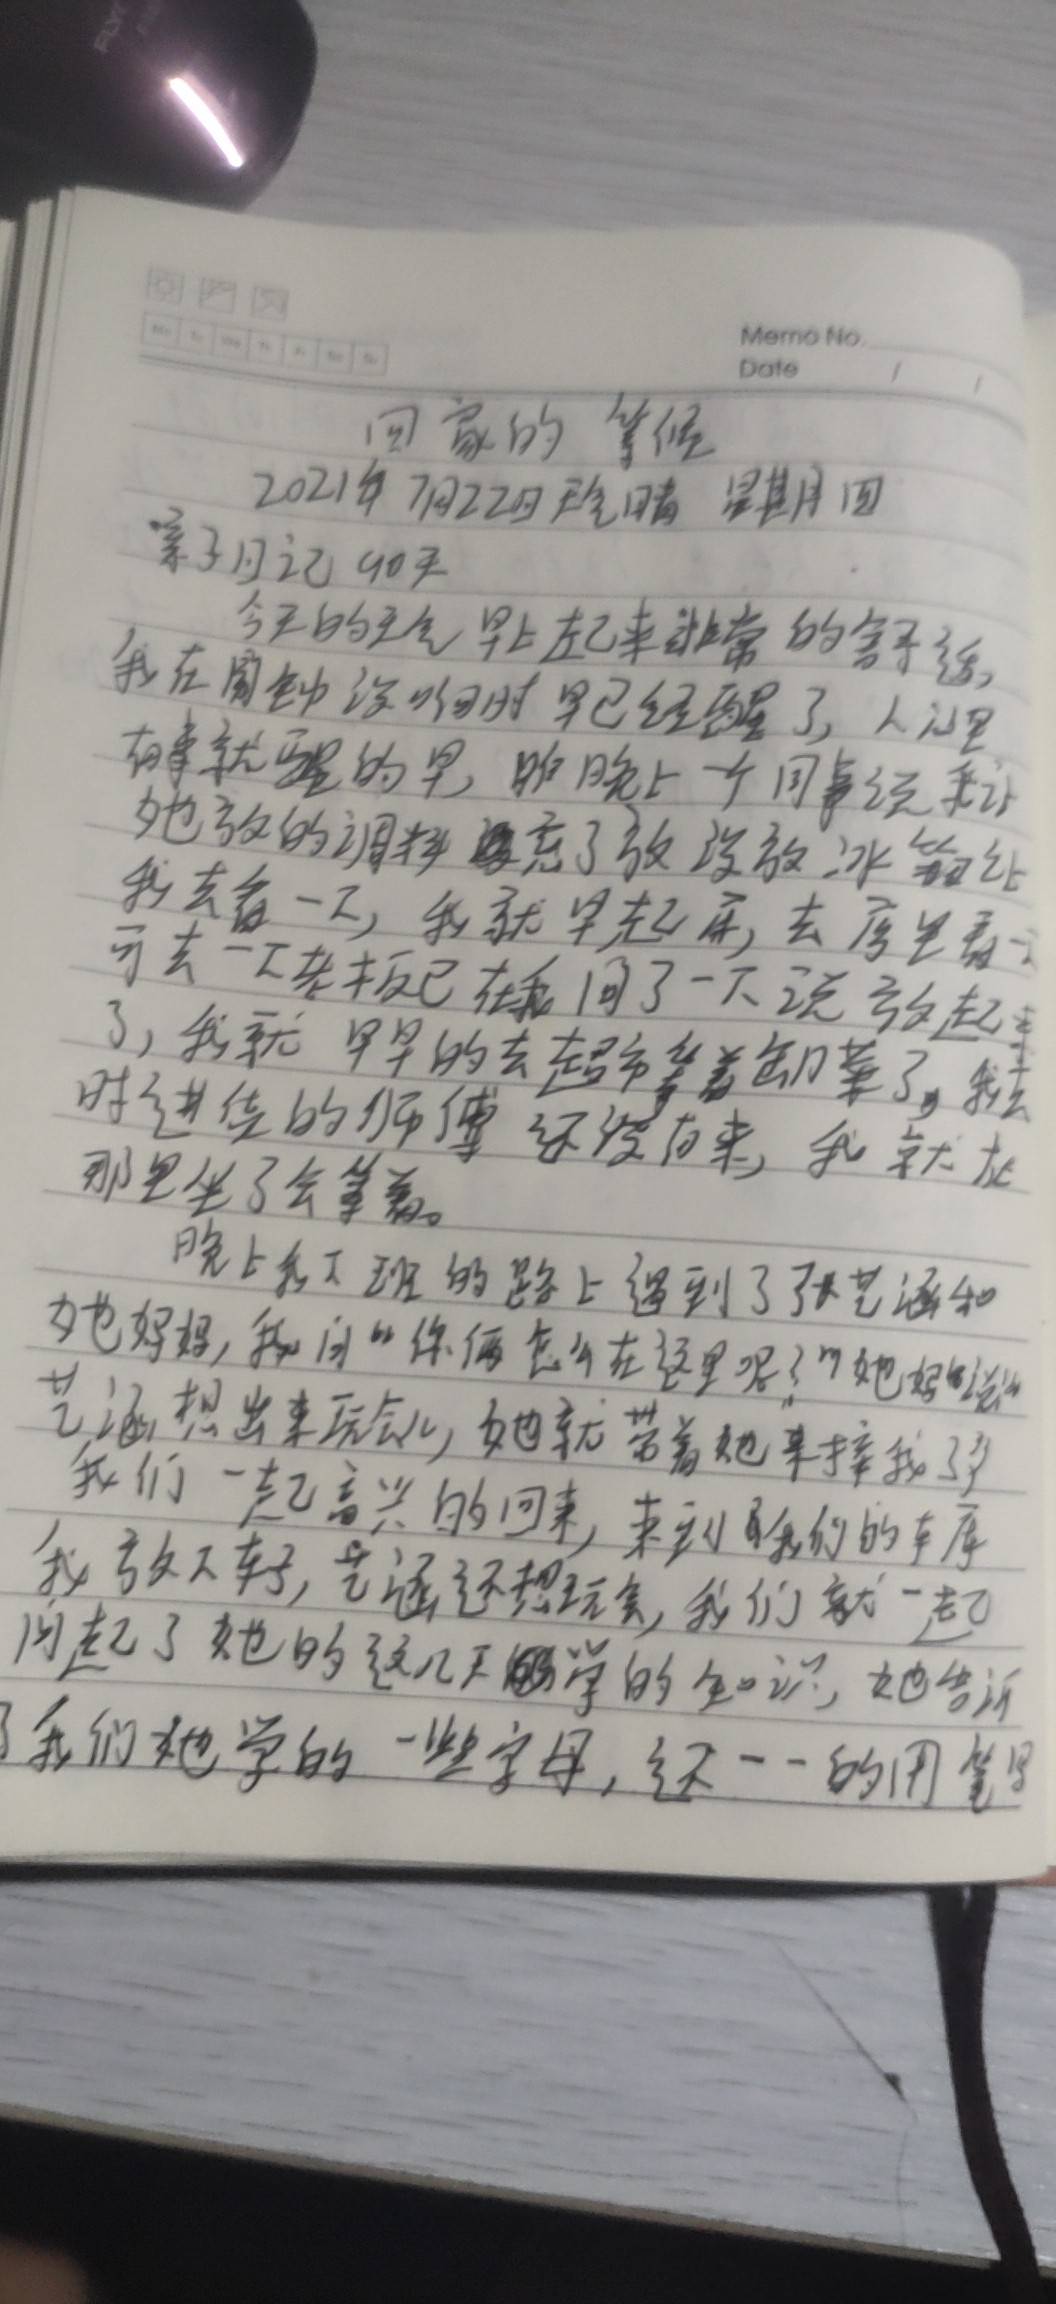 FLY
Memo No.
Date / /
回家的等候
2021年7月22日 天气晴 星期四
亲子日记 90天
今天的天气早上起来非常的舒适,
我在闹钟没响时早已经醒了, 人心里
有事就醒的早, 昨晚上一个同事说来让
她放的调料忘了放没放冰箱让
我去看一下, 我就早起床, 去店里看一下
可去一下老板已在我问了一下说放起来
了, 我就早早的去超市等着卸菜了, 我去
时进货的师傅还没有来, 我就在
那里坐了会等着。
晚上我下班的路上遇到了张艺涵和
她妈妈, 我问“你俩怎么在这里呢?”她妈妈说
艺涵想出来玩会儿, 她就带着她来接我了
我们一起高兴的回来, 来到我们的车库
我放下车子, 艺涵还想玩会, 我们就一起
问起了她的这几天学的知识, 她告诉
了我们她学的一些字母, 还一一的用笔写